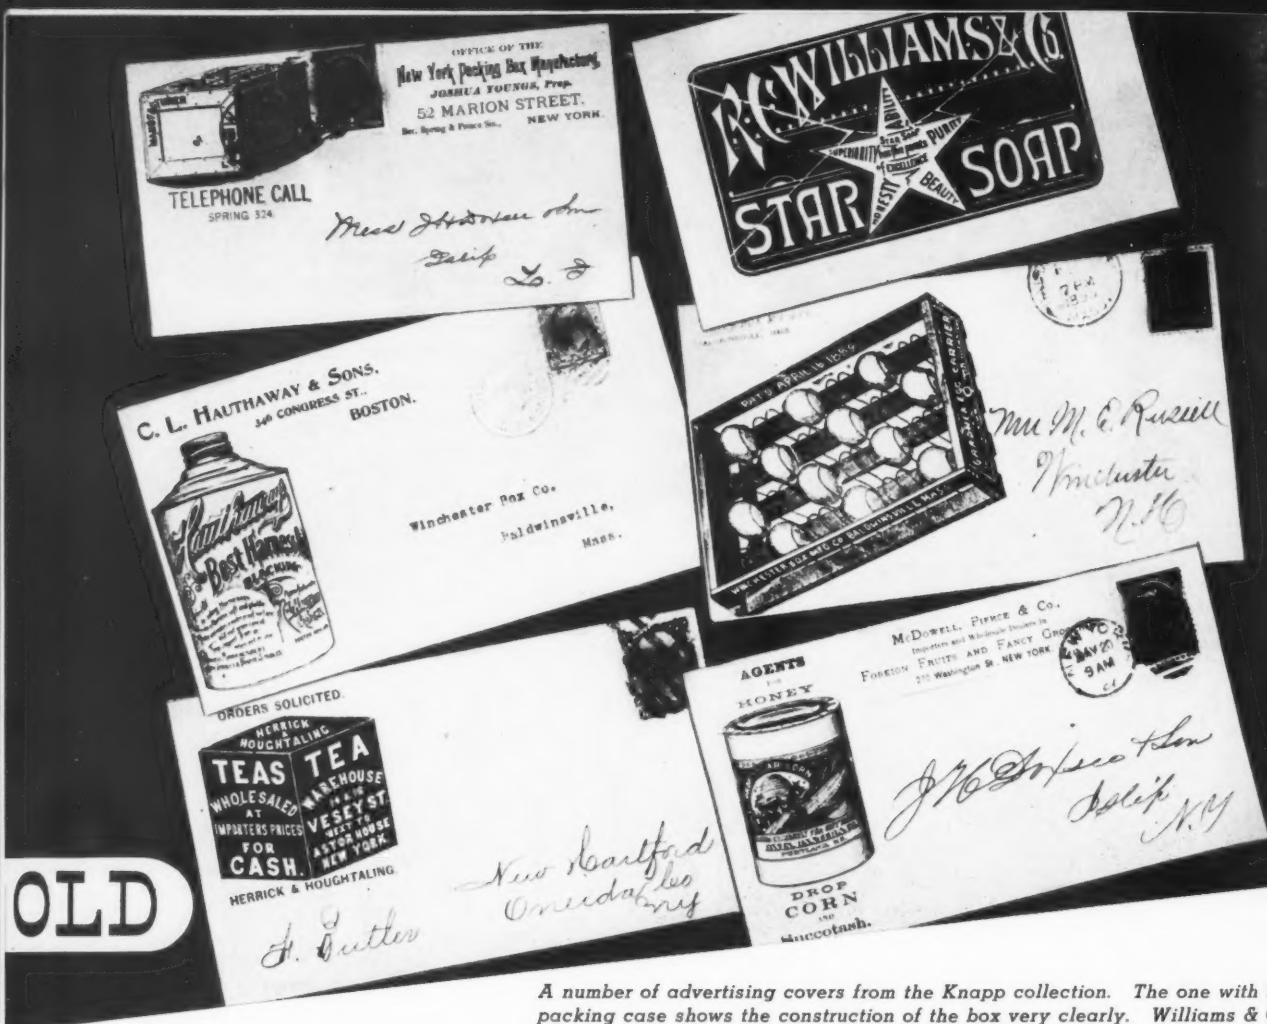 OFFICE OF THE
New York Packing Box Manufactory,
JOSHUA YOUNGS, Prop.
52 MARION STREET,
Bet. Spring & Prince Sts., NEW YORK.
TELEPHONE CALL
SPRING 324.
Islip
L. I
R.C. WILLIAMS & Co.
STAR SOAP
ABILITY
PURITY
BEAUTY
HONESTY
SUPERIORITY
STAR SOAP
EXCELLENCE
C. L. HAUTHAWAY & SONS.
346 CONGRESS ST.,
BOSTON.
Hauthaway's
Best Harness
BLACKING
Winchester Box Co.
Baldwinsville,
Mass.
7 PM
PAT'D APRIL 16 1889
GARDNER EGG CARRIER
WINCHESTER BOX MFG CO BALDWINSVILLE MASS
M. E. Russell
Winchester
N.H
ORDERS SOLICITED.
HERRICK
&
HOUGHTALING
TEAS
WHOLESALED
AT
IMPORTERS PRICES
FOR
CASH.
TEA
WAREHOUSE
VESEY ST.
NEXT TO
ASTOR HOUSE
NEW YORK
HERRICK & HOUGHTALING.
New Hartford
Oneida Co
NY
F. Butler
McDOWELL, PIERCE & Co.,
Importers and Wholesale Dealers in
FOREIGN FRUITS AND FANCY
Washington St., NEW YORK.
NEW YORK
MAY 20
9 AM
AGENTS
FOR
HONEY
DROP
CORN
AND
Succotash.
PORTLAND, ME.
J H & Son
Islip
N.Y
OLD
A number of advertising covers from the Knapp collection. The one with
packing case shows the construction of the box very clearly. Williams &